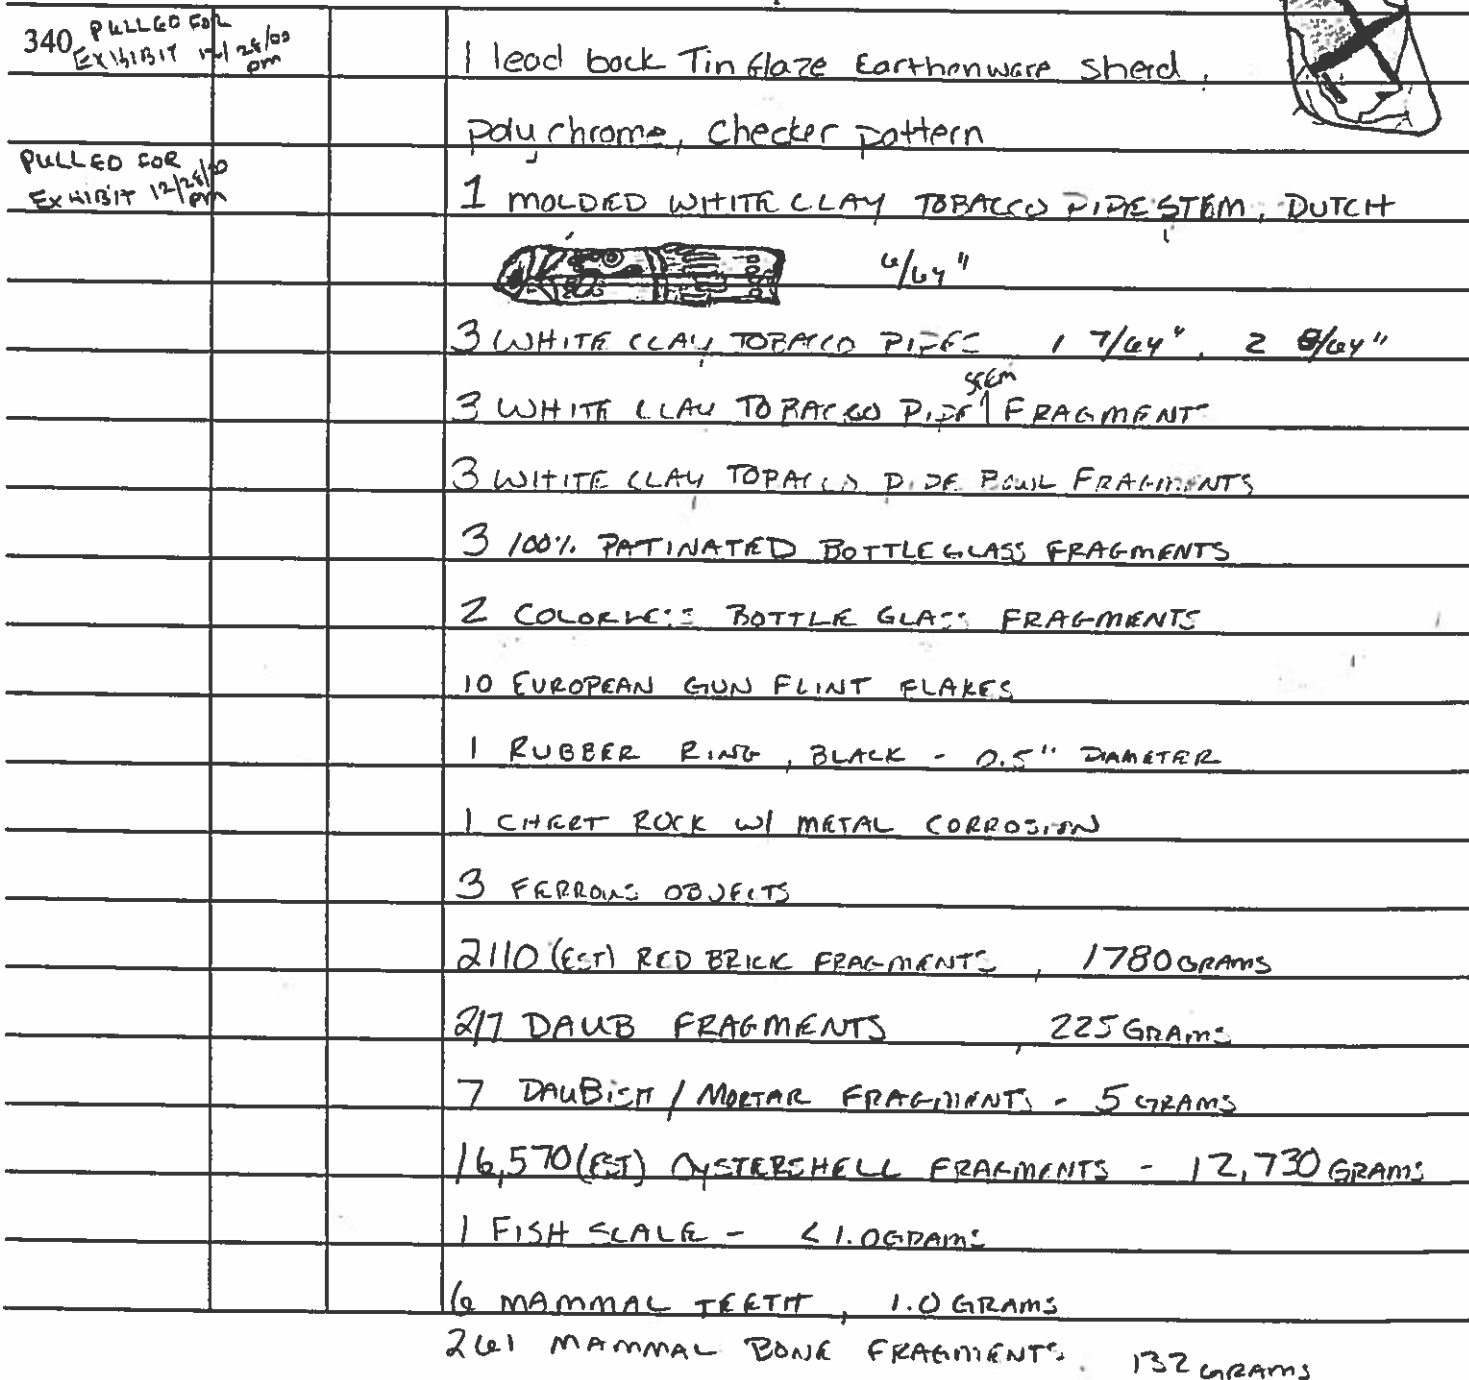 340 PULLED FOR
EXHIBIT 12/28/00
pm
1 lead back Tin Glaze Earthenware sherd,
polychrome, checker pattern
PULLED FOR
EXHIBIT 12/28/00
pm
1 MOLDED WHITE CLAY TOBACCO PIPE STEM, DUTCH
6/64"
3 WHITE CLAY TOBACCO PIPES 1 7/64", 2 8/64"
STEM
3 WHITE CLAY TOBACCO PIPE FRAGMENTS
3 WHITE CLAY TOBACCO PIPE BOWL FRAGMENTS
3 100% PATINATED BOTTLE GLASS FRAGMENTS
2 COLORLESS BOTTLE GLASS FRAGMENTS
10 EUROPEAN GUN FLINT FLAKES
1 RUBBER RING, BLACK - 0.5" DIAMETER
1 CHERT ROCK W/ METAL CORROSION
3 FERROUS OBJECTS
2110 (EST) RED BRICK FRAGMENTS, 1780 GRAMS
217 DAUB FRAGMENTS, 225 GRAMS
7 DAUBISH / MORTAR FRAGMENTS - 5 GRAMS
16,570 (EST) OYSTERSHELL FRAGMENTS - 12,730 GRAMS
1 FISH SCALE - < 1.0 GRAMS
6 MAMMAL TEETH, 1.0 GRAMS
261 MAMMAL BONE FRAGMENTS. 132 GRAMS